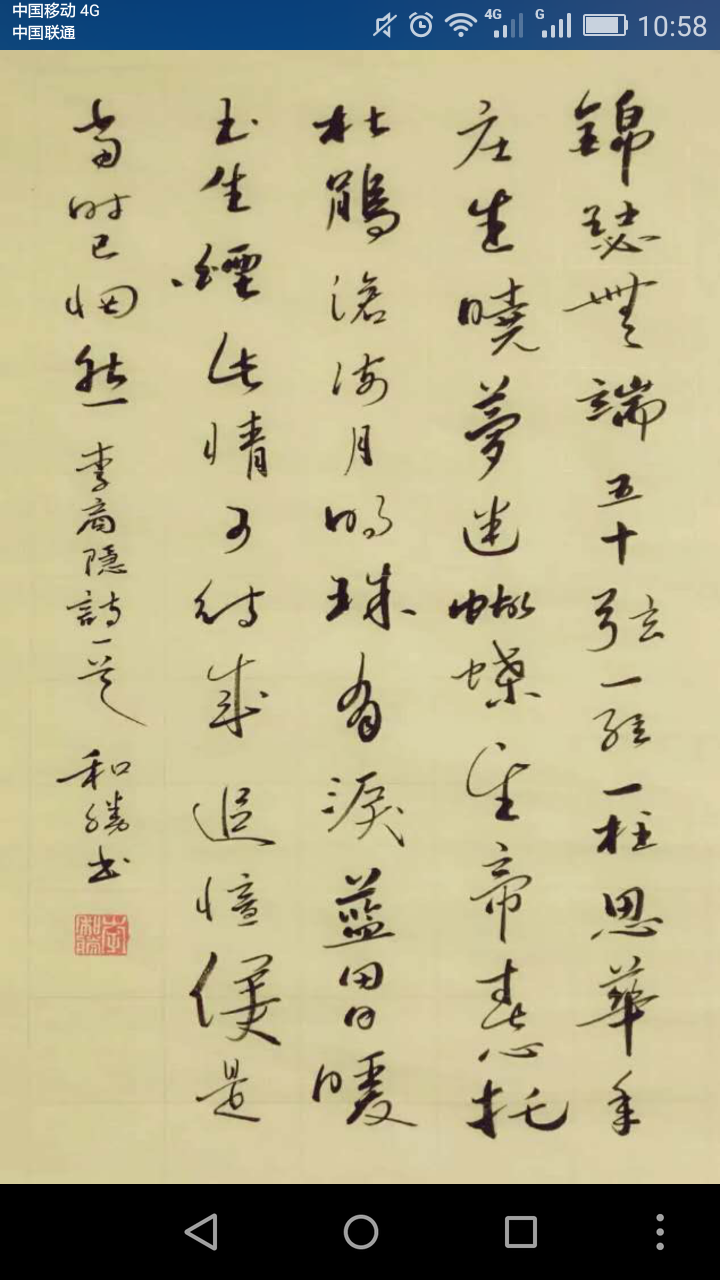 中国移动 4G
中国联通
4G
G
10:58
錦瑟無端五十弦一絃一柱思華年
庄生曉夢迷蝴蝶望帝春心托
杜鵑滄海月明珠有淚藍田日暖
玉生煙此情可待成追憶是
當時已惘然 李商隱詩一首 和勝書